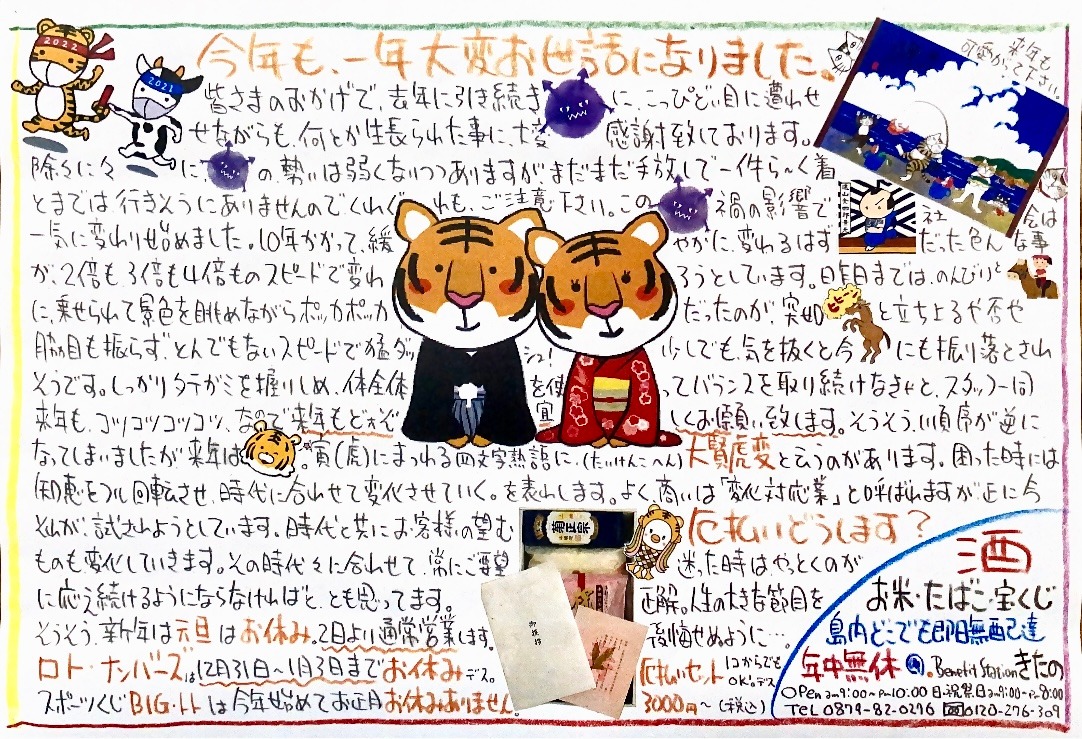 今年も、一年大変お世話になりました。
来年も
可愛がって下さい。
2022
2021
皆さまのおかげで、去年に引き続き に、こっぴどい目に遭わせ
せながらも、何とか生長られた事に、大変 感謝致しております。
除々に々 に の勢いは弱くなりつつありますがまだまだ手放しで一件らく着
とまでは行きそうにありませんのでくれぐれも、ご注意下さい。この 禍の影響で 社 会は
一気に変わり始めました。10年かかって、緩やかに、変わるはずだった色んな事
が、2倍も3倍も4倍ものスピードで変わろうとしています。昨日までは、のんびりと
に、乗せられて景色を眺めながらポッカポッカだったのが、突如 と立ち上るや否や
脇目も振らず、とんでもないスピードで猛ダッシュ!少しでも気を抜くと今 にも振り落とされ
そうです。しっかりタテガミを握りしめ、体全体を使ってバランスを取り続けなきゃと、スタッフ一同
来年も、コツコツコツコツ、なので来年もどうぞ宜しくお願い致します。そうそう、順序が逆に
なってしまいましたが来年は 。寅(虎)にまつわる四文字熟語に、(たいけんこへん)大賢虎変と云うのがあります。困った時には
知恵をフル回転させ、時代に合わせて変化させていく。を表わします。よく、商いは「変化対応業」と呼ばれますが正に今
それが、試されようとしています。時代と共にお客様の望む
ものも変化していきます。その時代々に合わせて、常にご要望
に応え続けるようにならなければと、とも思ってます。
そうそう、新年は元旦はお休み。2日より通常営業です。
ロト・ナンバーズは12月31日〜1月3日までお休みデス。
スポーツくじBIG・トトは今年始めてお正月お休みありません。
菊正宗
御祓様
厄払いどうします?
迷った時はやっとくのが
正解。人生の大きな節目を
後悔せぬように…
厄払いセット 1コからでもOK!デス
3000円〜(税込)
酒
お米・たばこ・宝くじ
島内どこでも即日無料配達
年中無休 Benefit Stationきたの
OPen am9:00〜Pm10:00 日・祝祭日am9:00〜Pm8:00
TEL 0879-82-0276 0120-276-309